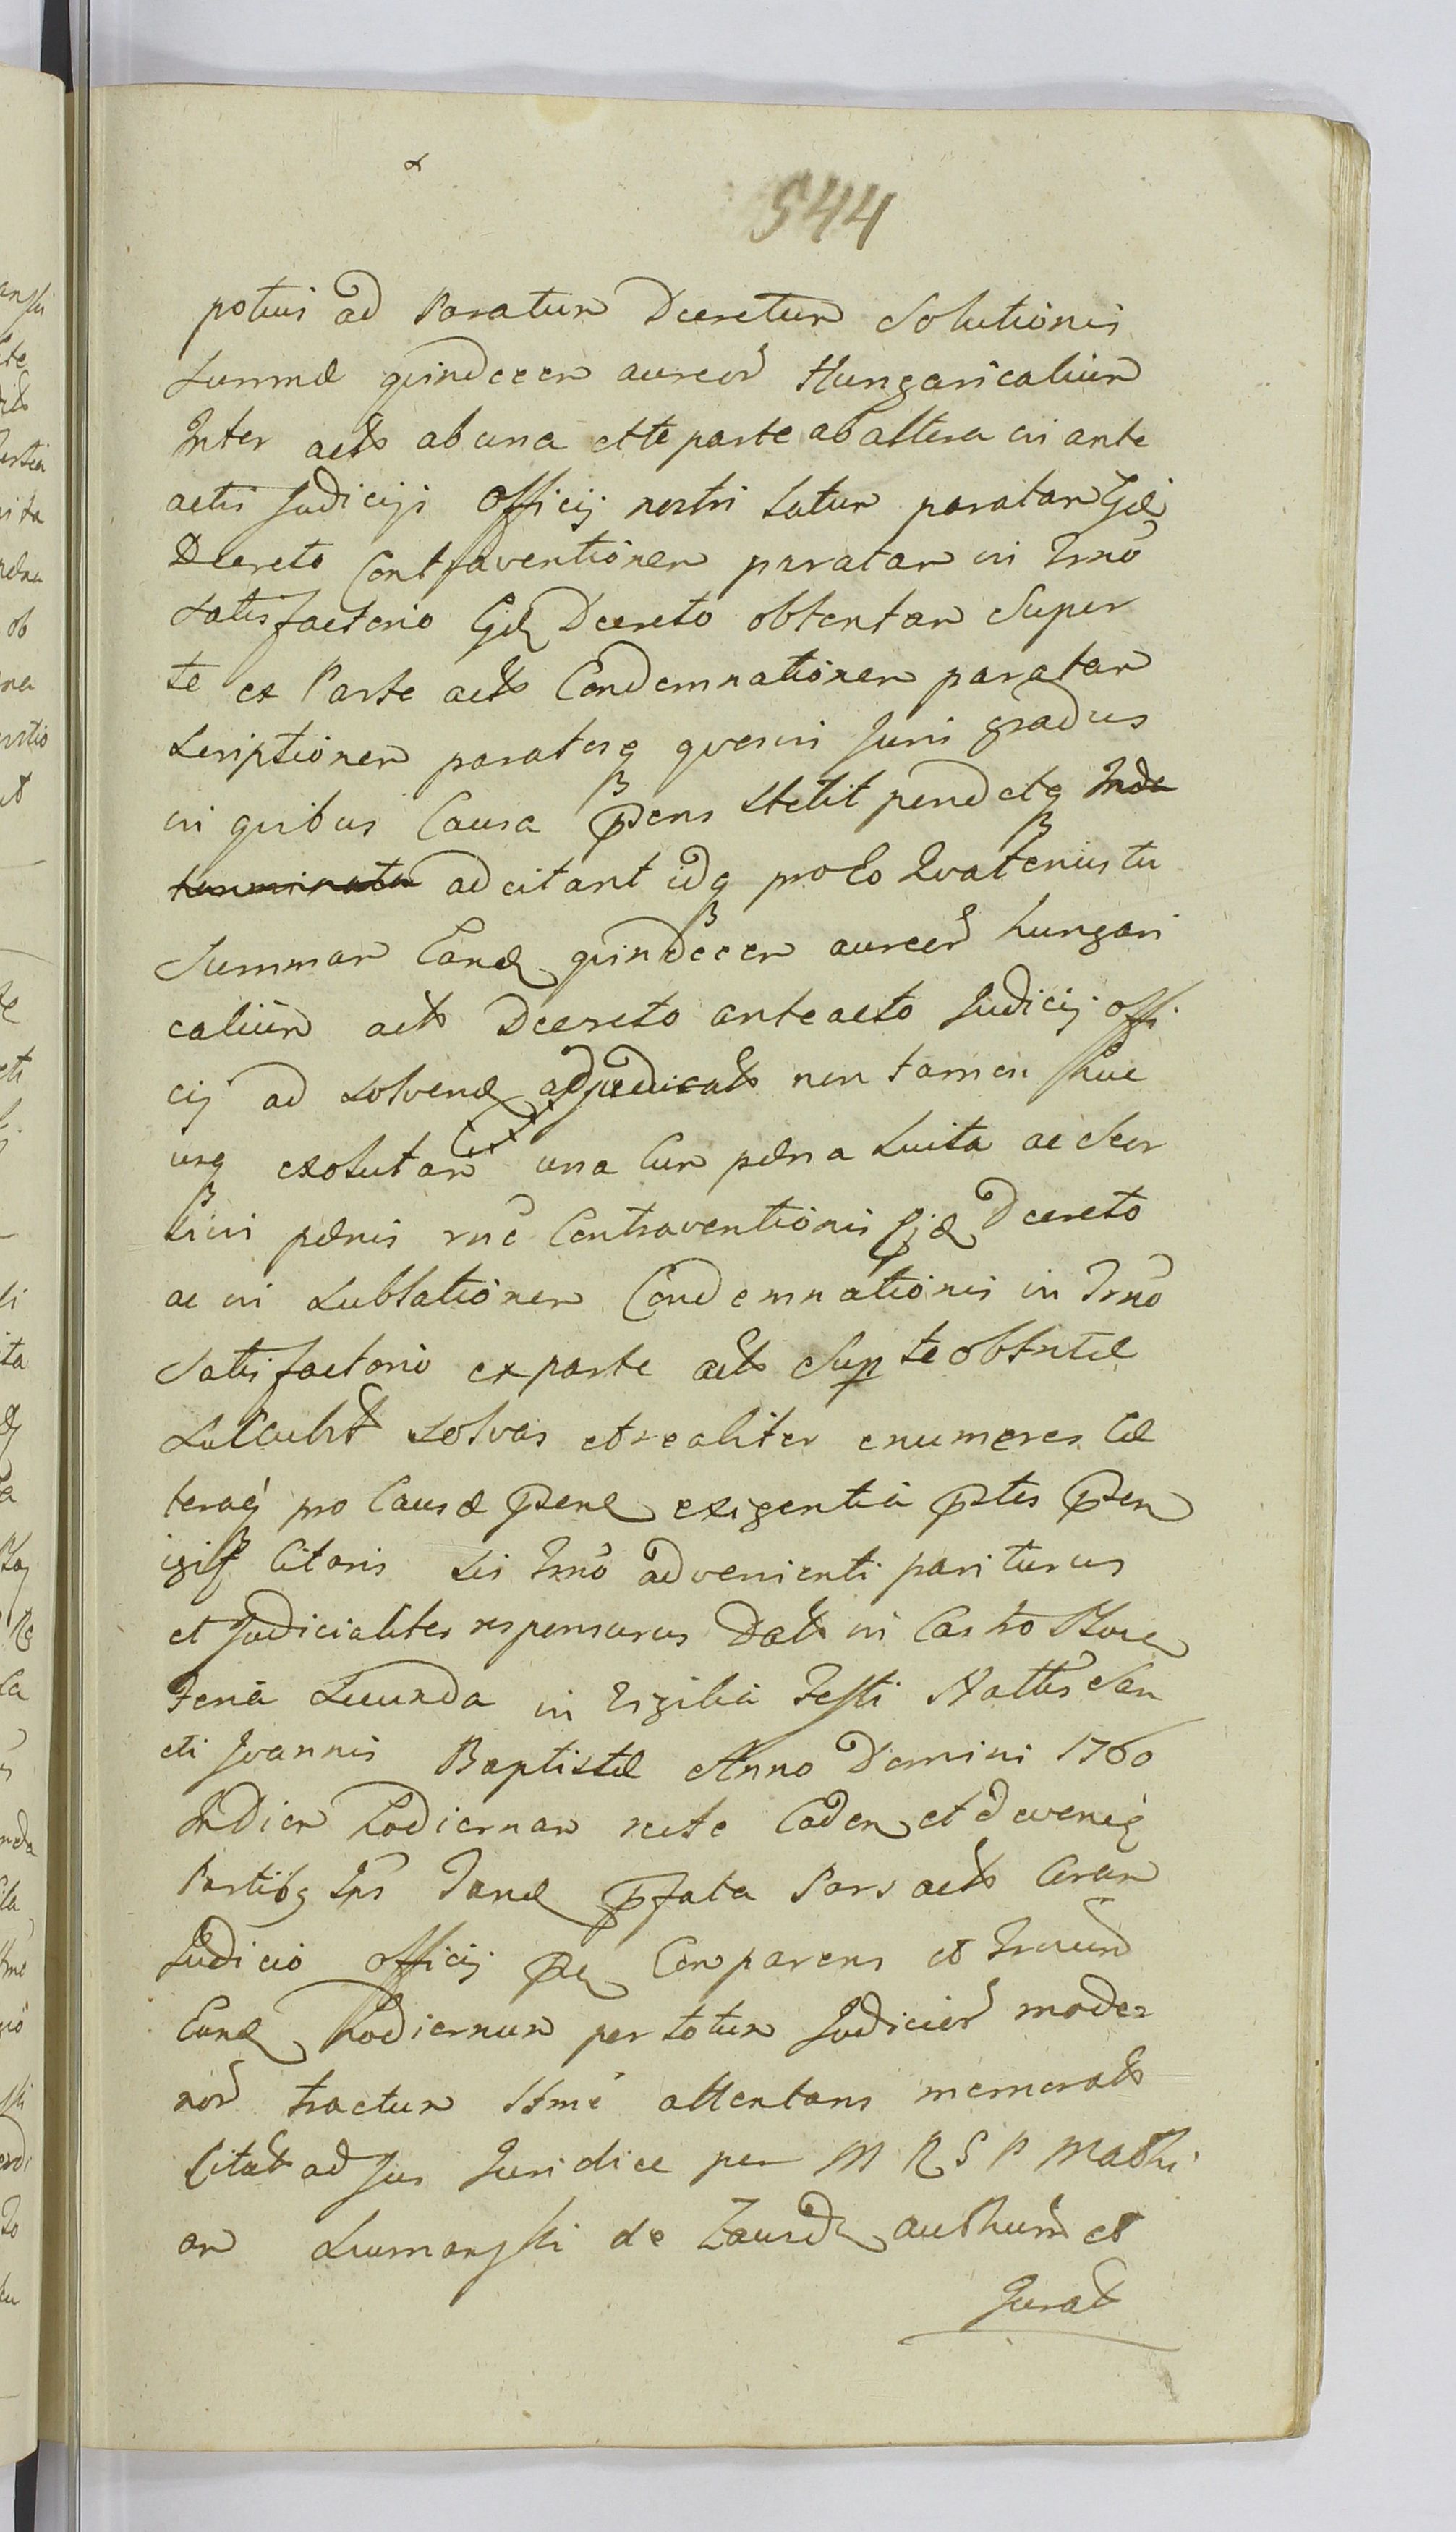 544
potius ad Paratum Decretum Solutionis
Summæ quindecem aureor Hungaricalium
Inter acto ab una et te parte ab altera in ante
actis Judicij Officij nostri Latum paratam Ejd
Decreto Contraventionem paratam in Trno
Satisfactorio Ejd Decreto obtentam Super
te ex Parte acto Condemnationem paratam
scriptionem paratosq quosvis Juris gradus
in quibus Causa pñs stetit pendetq
adcitant idq pro Eo Quatenus tu
Summam Eand quindecem aureor hungari
calium acto Decreto anteacto Judicij offi
cij ad solvend adjudicato non tamen huc
usq exolutam una Cum pæna Luita ac Seor
sivis pænis rne Contraventionis Ejd Decreto
ac in Sublationem Condemnationis in Trno
Satisfactorio ex parte acto Sup te obtentæ
solvas et realiter enumeres Cæ
teraq pro Causæ pñs exigentia
Citaris sis Trno advenienti pariturus
et Judicialiter responsurus Dat in Castro
Feria Secunda in Vigilia Festi Nattis San
cti Joannis Baptistæ Anno Domini 1760
In Diem hodiernam recte Caden et deveneq
Partibq Ips Tand pfata Pars acto Coram
Judicio officij pñ Comparens et Trmum
Eund hodiernum per totum Judicior moder
nor tractum Ttme attentans memorato
Citat ad Jus Juridice per M R S P Mathi
am Szumanski de authum et
Jurat